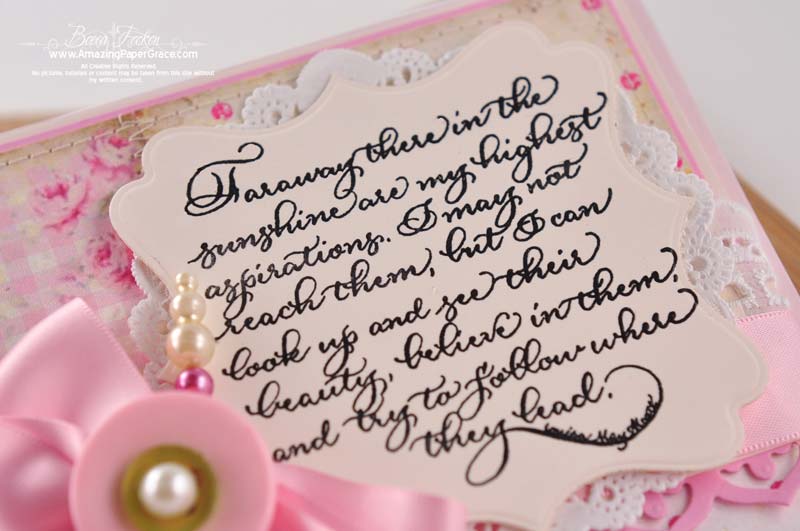 Becca Feeken
www.AmazingPaperGrace.com
All Creative Rights Reserved.
No pictures, tutorials or content may be taken from this site without
my written consent.
Faraway there in the
sunshine are my highest
aspirations. I may not
reach them, but I can
look up and see their
beauty, believe in them,
and try to follow where
they lead.
Louisa May Alcott